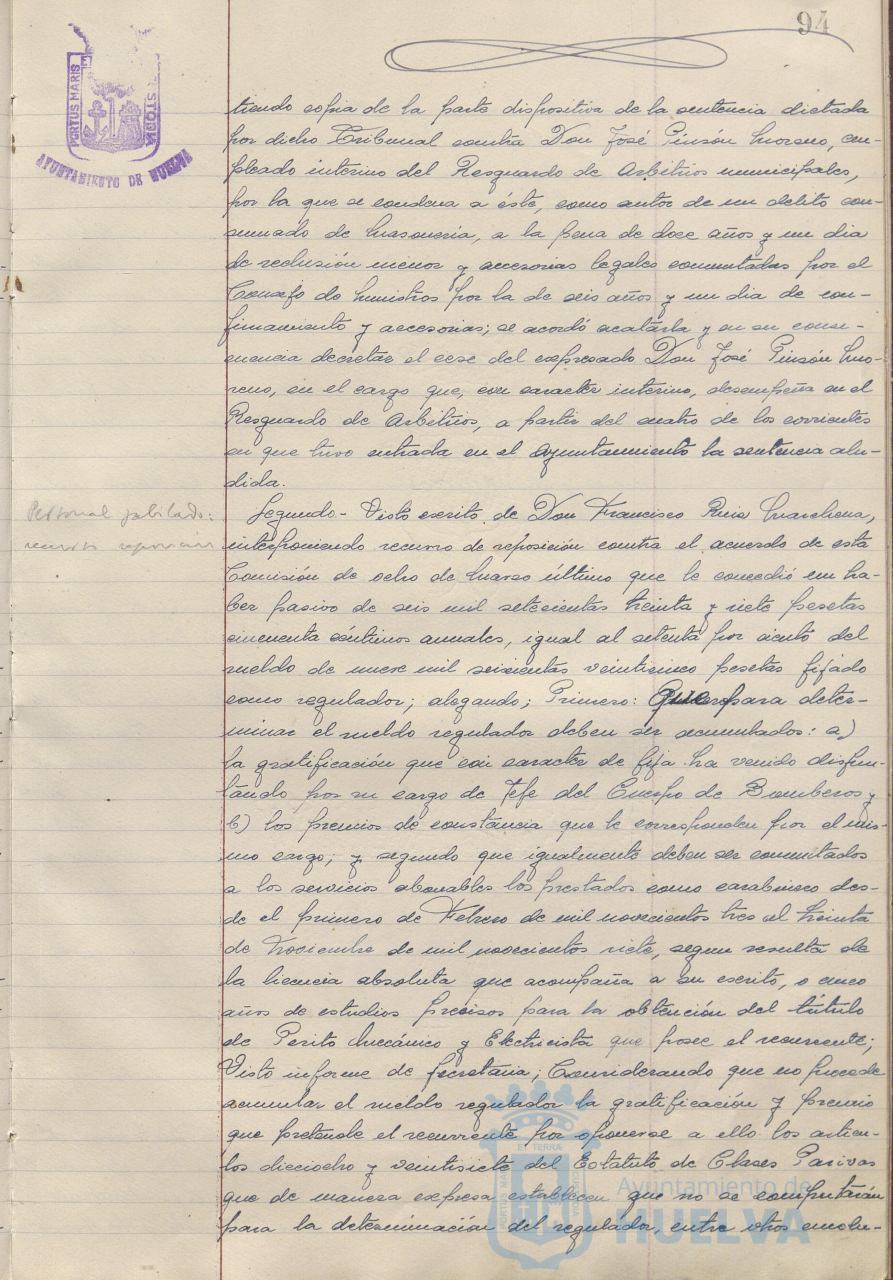 94
PORTUS MARIS
AYUNTAMIENTO DE HUELVA
tiendo copia de la parte dispositiva de la sentencia dictada
por dicho Tribunal contra Don José Pinzón Moreno, em-
pleado interino del Resguardo de Arbitrios municipales,
por la que se condena a éste, como autor de un delito con-
sumado de masonería, a la pena de doce años y un dia
de reclusión menor y accesorias legales conmutadas por el
Consejo de Ministros por la de seis años y un dia de con-
finamiento y accesorias; se acordó acatarla y en su conse-
cuencia decretar el cese del expresado Don José Pinzón Mo-
reno, en el cargo que, con caracter interino, desempeña en el
Resguardo de Arbitrios, a partir del cuatro de los corrientes
en que tuvo entrada en el Ayuntamiento la sentencia alu-
dida.
Personal jubilado:
recurso reposición
Segundo- Visto escrito de Don Francisco Ruiz Marchena,
interponiendo recurso de reposición contra el acuerdo de esta
Comisión de ocho de Marzo último que le concedió un ha-
ber pasivo de seis mil setecientas treinta y siete pesetas
cincuenta céntimos anuales, igual al setenta por ciento del
sueldo de nueve mil seiscientas veinticinco pesetas fijado
como regulador; alegando; Primero: Que para deter-
minar el sueldo regulador deben ser acumulados: a)
la gratificación que con caracter de fija ha venido disfru-
tando por su cargo de Jefe del Cuerpo de Bomberos y
b) los premios de constancia que le corresponden por el mis-
mo cargo; y segundo que igualmente deben ser conmutados
a los servicios abonables los prestados como carabinero des-
de el primero de Febrero de mil novecientos tres al treinta
de Noviembre de mil novecientos siete, segun resulta de
la licencia absoluta que acompaña a su escrito, o cinco
años de estudios precisos para la obtención del título
de Perito Mecánico y Electricista que posee el recurrente;
Visto informe de Secretaria; Considerando que no procede
acumular el sueldo regulador la gratificación y premio
que pretende el recurrente por oponerse a ello los articu-
los dieciocho y veintisiete del Estatuto de Clases Pasivas
que de manera expresa establecen que no se computarán
para la determinación del regulador, entre otros emolu-
Ayuntamiento de
HUELVA